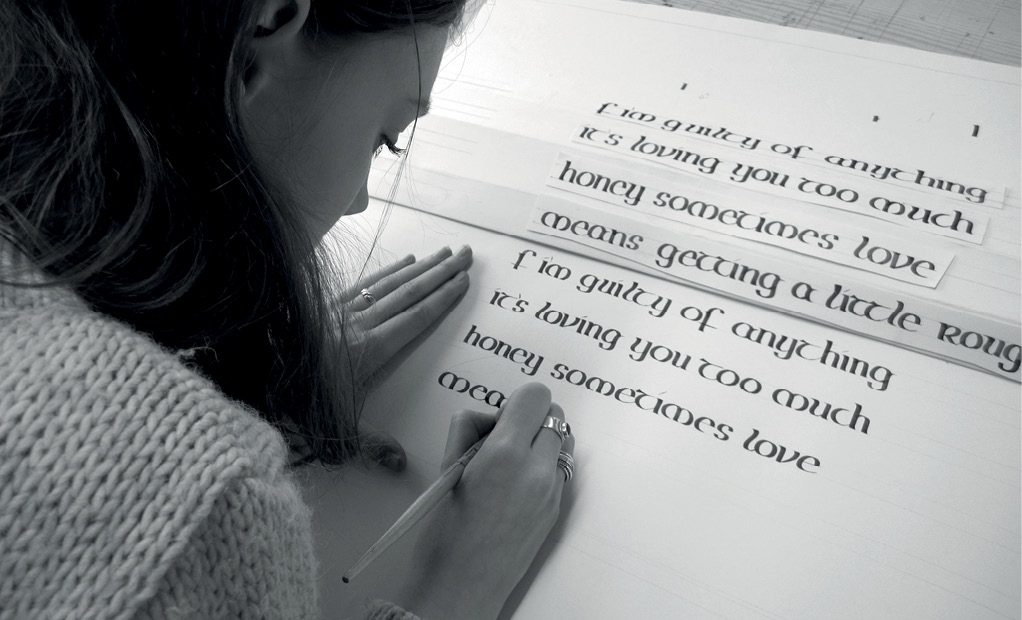 f i'm guilty of anything
it's loving you too much
honey sometimes love
means getting a little roug
f i'm guilty of anything
it's loving you too much
honey sometimes love
mea